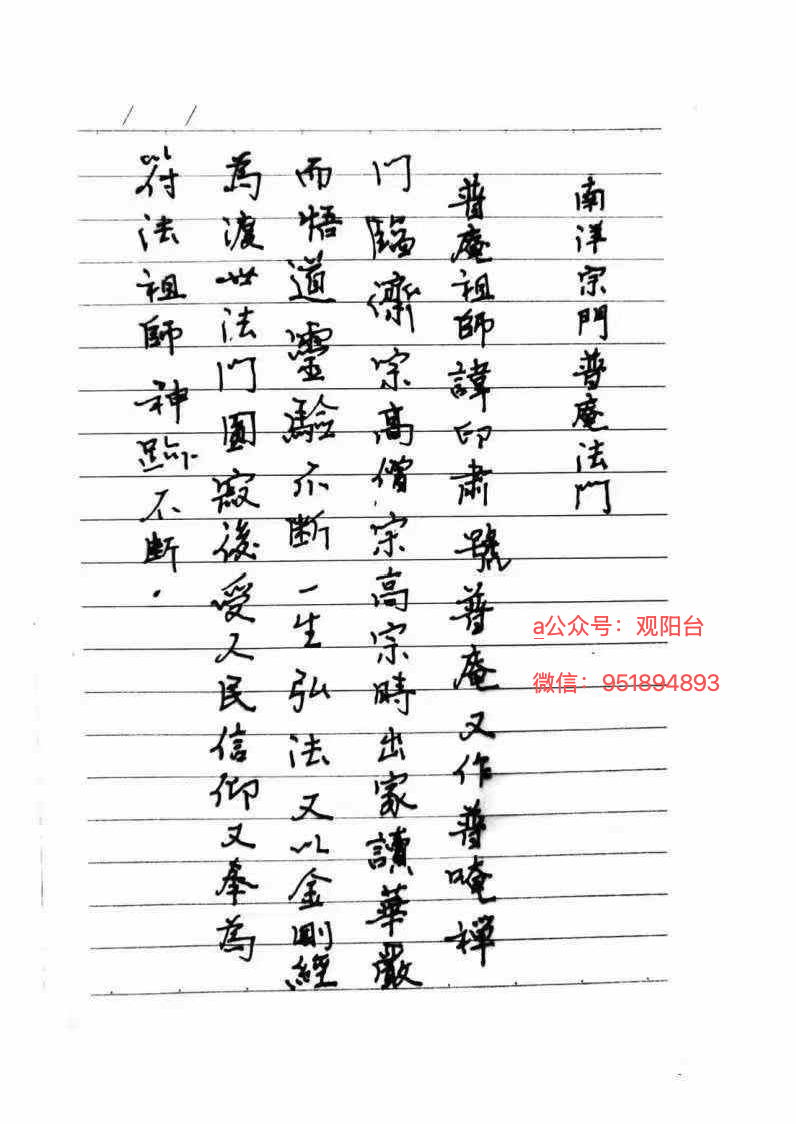 南洋宗門普庵法門
普庵祖師諱印肅號普庵又作普唵禪
門臨濟宗高僧宗高宗時出家讀華嚴
而悟道靈驗不斷一生弘法又以金剛經
為渡世法門圓寂後受人民信仰又奉為
符法祖師神跡不断.
a公众号：观阳台
微信：951894893